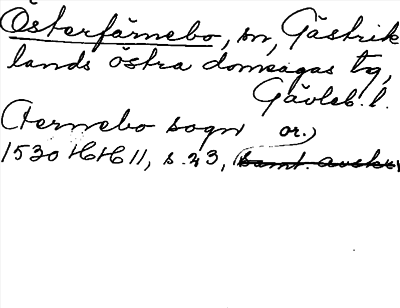 Österfärnebo, sn, Gästrik
lands östra domsagas tg,
Gävleb. l.
Aernebo sogn or.)
1530 HH 11, s. 23, (samt. avskr.